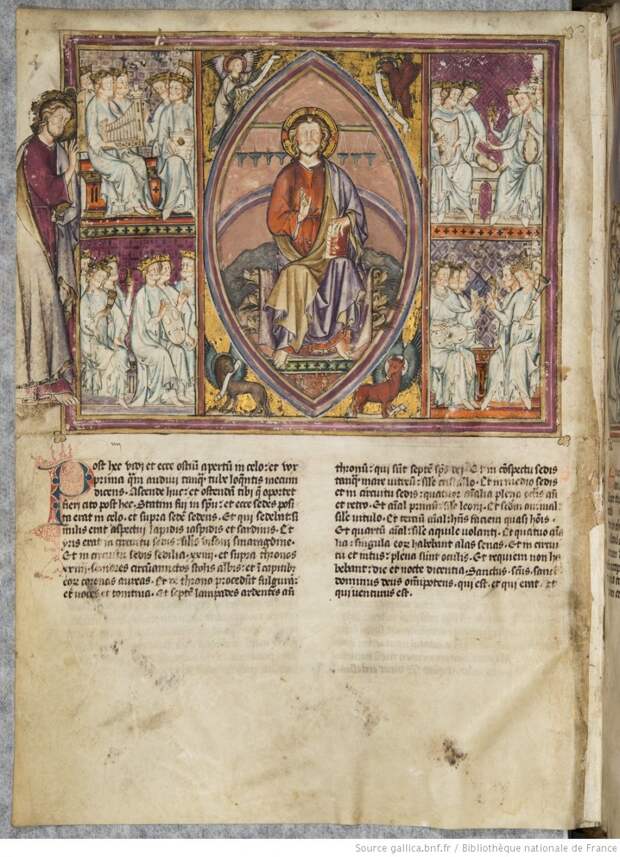 Post hec vidi et ecce ostiū apertū in celo: et vox
prima q̄m audiui tanq̄ tube loq̄ntis mecum
dicens. Ascende huc: et ostendā tibi q̄ oportet
fieri cito post hec. Statim fui in sp̄u: et ecce sedes posi
ta erat in celo. et supra sedē sedens. Et qui sedebat si
milis erat aspectui lapidis iaspidis et sardinis. Et
yris erat in circuitu sedis: sil̄is visioni smaragdine.
Et in circuitu sedis sedilia .xxiiij. et supra thronos
xxiiij. seniores circūamictos stolis albis: et ī capitib;
eor coronas aureas. Et de throno procedūt fulgura:
et voces et tonitrua. et septē lampades ardentes an̄
thronū: qui sūt septē sp̄s dei. Et ī cōspectu sedis
tanq̄ mare vitreū: sil̄e cristallo. Et in medio sedis
et in circuitu sedis: quatuor aīalia plena oculis an̄
et retro. Et aīal primū: sil̄e leoni. et scdm aīal:
sil̄e uitulo. Et terciū aīal: hn̄s faciem quasi hoīs.
Et quartū aīal: sil̄e aquile uolanti. Et quatuor aīa
lia: singula eor habebant alas senas. Et in circuitu
et intus: plena sunt oculis. Et requiem non ha
bebant: die et nocte dicentia. Sanctus. scūs. sanctus
dominus deus omīpotens. qui est. et qui erat. et
qui uenturus est.
Source gallica.bnf.fr / Bibliothèque nationale de France